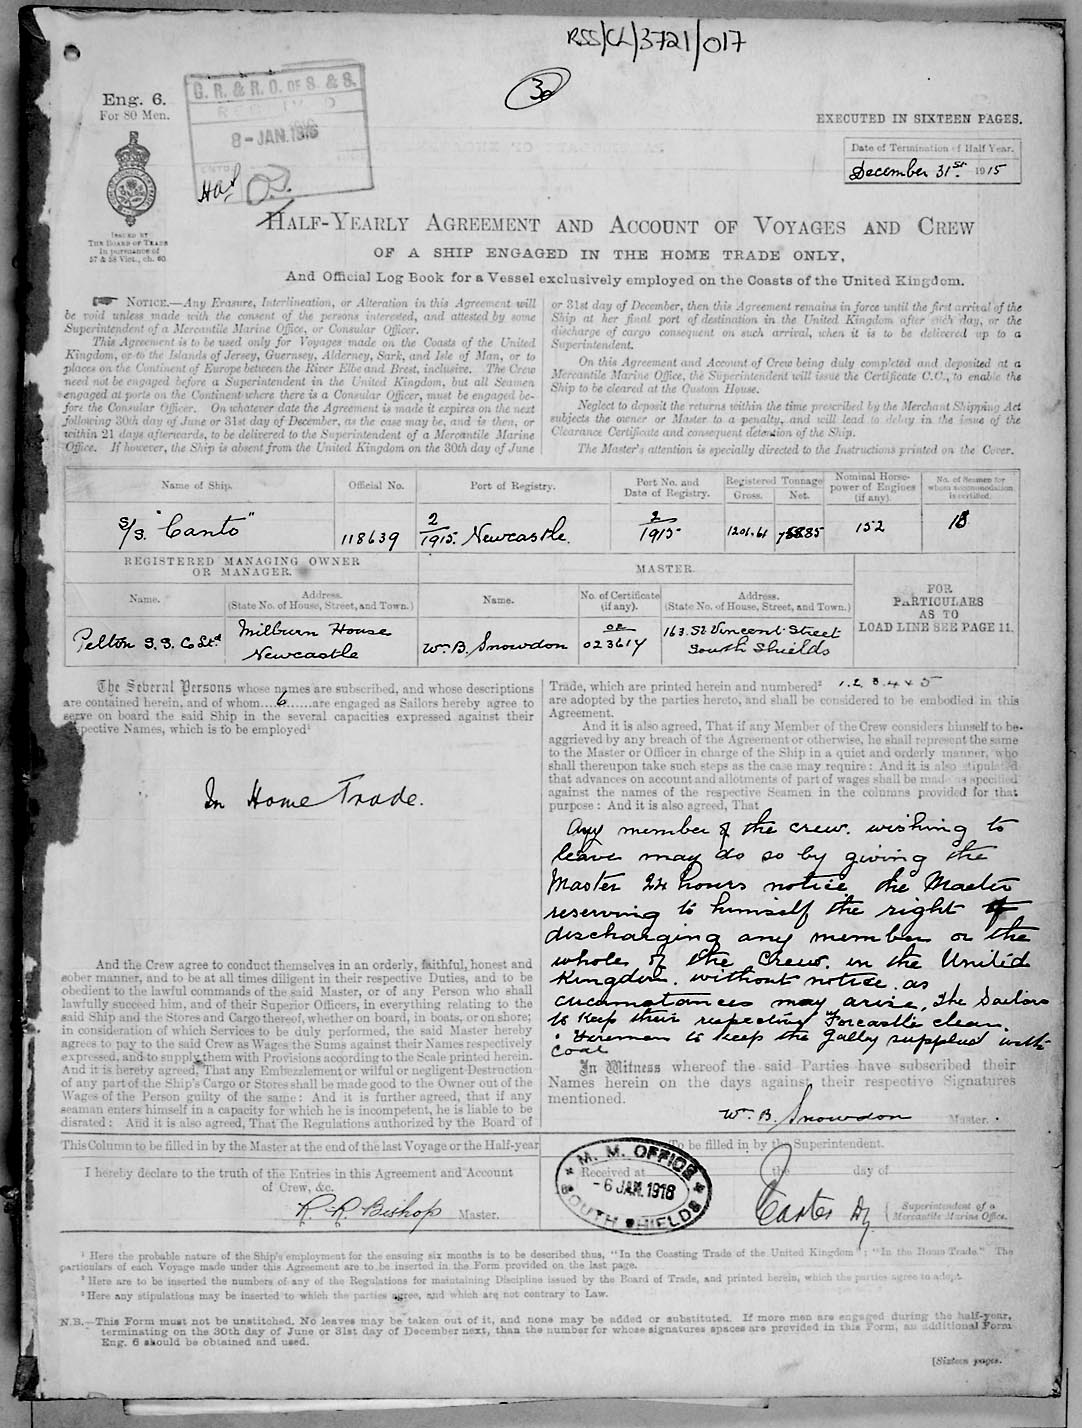 RSS/CL/3721/017
30
Eng. 6.
For 80 Men.
G. R. & R. O. OF S. & S.
RECEIVED
8-JAN.1916
EXECUTED IN SIXTEEN PAGES.
Date of Termination of Half Year.
December 31st. 1915
ISSUED BY
THE BOARD OF TRADE
In pursuance of
57 & 58 Vict., ch. 60
HALF-YEARLY AGREEMENT AND ACCOUNT OF VOYAGES AND CREW
OF A SHIP ENGAGED IN THE HOME TRADE ONLY,
And Official Log Book for a Vessel exclusively employed on the Coasts of the United Kingdom.
NOTICE.—Any Erasure, Interlineation, or Alteration in this Agreement will
be void unless made with the consent of the persons interested, and attested by some
Superintendent of a Mercantile Marine Office, or Consular Officer.
This Agreement is to be used only for Voyages made on the Coasts of the United
Kingdom, or to the Islands of Jersey, Guernsey, Alderney, Sark, and Isle of Man, or to
places on the Continent of Europe between the River Elbe and Brest, inclusive. The Crew
need not be engaged before a Superintendent in the United Kingdom, but all Seamen
engaged at ports on the Continent where there is a Consular Officer, must be engaged be-
fore the Consular Officer. On whatever date the Agreement is made it expires on the next
following 30th day of June or 31st day of December, as the case may be, and is then, or
within 21 days afterwards, to be delivered to the Superintendent of a Mercantile Marine
Office. If however, the Ship is absent from the United Kingdom on the 30th day of June
or 31st day of December, then this Agreement remains in force until the first arrival of the
Ship at her final port of destination in the United Kingdom after such day, or the
discharge of cargo consequent on such arrival, when it is to be delivered up to a
Superintendent.
On this Agreement and Account of Crew being duly completed and deposited at a
Mercantile Marine Office, the Superintendent will issue the Certificate C.C., to enable the
Ship to be cleared at the Custom House.
Neglect to deposit the returns within the time prescribed by the Merchant Shipping Act
subjects the owner or Master to a penalty, and will lead to delay in the issue of the
Clearance Certificate and consequent detention of the Ship.
The Master's attention is specially directed to the Instructions printed on the Cover.
Name of Ship. Official No. Port of Registry. Port No. and Date of Registry. Registered Tonnage Gross. Net. Nominal Horse-power of Engines (if any). No. of Seamen for whom accommodation is certified.
S/S. "Canto" 118639 2/1915. Newcastle. 2/1915 1201.61 152 18
REGISTERED MANAGING OWNER
OR MANAGER.
MASTER.
FOR
PARTICULARS
AS TO
LOAD LINE SEE PAGE 11.
Name. Address. (State No. of House, Street, and Town.) Name. No. of Certificate (if any). Address. (State No. of House, Street, and Town.)
Pelton S.S. Co Ltd Milburn House Newcastle Wm. B. Snowdon 023614 163. St Vincent Street South Shields
The Several Persons whose names are subscribed, and whose descriptions
are contained herein, and of whom....6......are engaged as Sailors hereby agree to
serve on board the said Ship in the several capacities expressed against their
respective Names, which is to be employed¹
In Home Trade.
And the Crew agree to conduct themselves in an orderly, faithful, honest and
sober manner, and to be at all times diligent in their respective Duties, and to be
obedient to the lawful commands of the said Master, or of any Person who shall
lawfully succeed him, and of their Superior Officers, in everything relating to the
said Ship and the Stores and Cargo thereof, whether on board, in boats, or on shore;
in consideration of which Services to be duly performed, the said Master hereby
agrees to pay to the said Crew as Wages the Sums against their Names respectively
expressed, and to supply them with Provisions according to the Scale printed herein.
And it is hereby agreed, That any Embezzlement or wilful or negligent Destruction
of any part of the Ship's Cargo or Stores shall be made good to the Owner out of the
Wages of the Person guilty of the same: And it is further agreed, that if any
seaman enters himself in a capacity for which he is incompetent, he is liable to be
disrated: And it is also agreed, That the Regulations authorized by the Board of
Trade, which are printed herein and numbered² 1.2.3.4 & 5
are adopted by the parties hereto, and shall be considered to be embodied in this
Agreement.
And it is also agreed, That if any Member of the Crew considers himself to be
aggrieved by any breach of the Agreement or otherwise, he shall represent the same
to the Master or Officer in charge of the Ship in a quiet and orderly manner, who
shall thereupon take such steps as the case may require: And it is also stipulated
that advances on account and allotments of part of wages shall be made as specified
against the names of the respective Seamen in the columns provided for that
purpose: And it is also agreed, That
Any member of the crew. wishing to
leave may do so by giving the
Master 24 hours notice, the Master
reserving to himself the right
discharging any member or the
whole of the Crew. in the United
Kingdom. without notice. as
circumstances may arise, The Sailors
to keep their respective Forcastle clean.
Firemen to keep the galley supplied with
coal
In Witness whereof the said Parties have subscribed their
Names herein on the days against their respective Signatures
mentioned.
Wm. B. Snowdon Master.
This Column to be filled in by the Master at the end of the last Voyage or the Half-year
I hereby declare to the truth of the Entries in this Agreement and Account
of Crew, &c.
R. R. Bishop Master.
To be filled in by the Superintendent.
Received at the day of
M. M. OFFICE
-6 JAN.1916
SOUTH SHIELDS
Carter Dy
Superintendent of a
Mercantile Marine Office.
¹ Here the probable nature of the Ship's employment for the ensuing six months is to be described thus, "In the Coasting Trade of the United Kingdom"; "In the Home Trade." The
particulars of each Voyage made under this Agreement are to be inserted in the Form provided on the last page.
² Here are to be inserted the numbers of any of the Regulations for maintaining Discipline issued by the Board of Trade, and printed herein, which the parties agree to adopt.
³ Here any stipulations may be inserted to which the parties agree, and which are not contrary to Law.
N.B.—This Form must not be unstitched. No leaves may be taken out of it, and none may be added or substituted. If more men are engaged during the half-year,
terminating on the 30th day of June or 31st day of December next, than the number for whose signatures spaces are provided in this Form, an additional Form
Eng. 6 should be obtained and used.
[Sixteen pages.